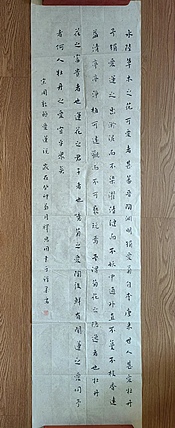 水陸草木之花可愛者甚蕃晉陶淵明獨愛菊自李唐來世人甚愛牡丹
予獨愛蓮之出淤泥而不染濯清漣而不妖中通外直不蔓不枝香遠
益清亭亭淨植可遠觀而不可褻玩焉予謂菊花之隱逸者也牡丹
花之富貴者也蓮花之君子者也噫菊之愛陶後鮮有聞蓮之愛同予
者何人牡丹之愛宜乎眾矣
宋周敦頤愛蓮說 歲在